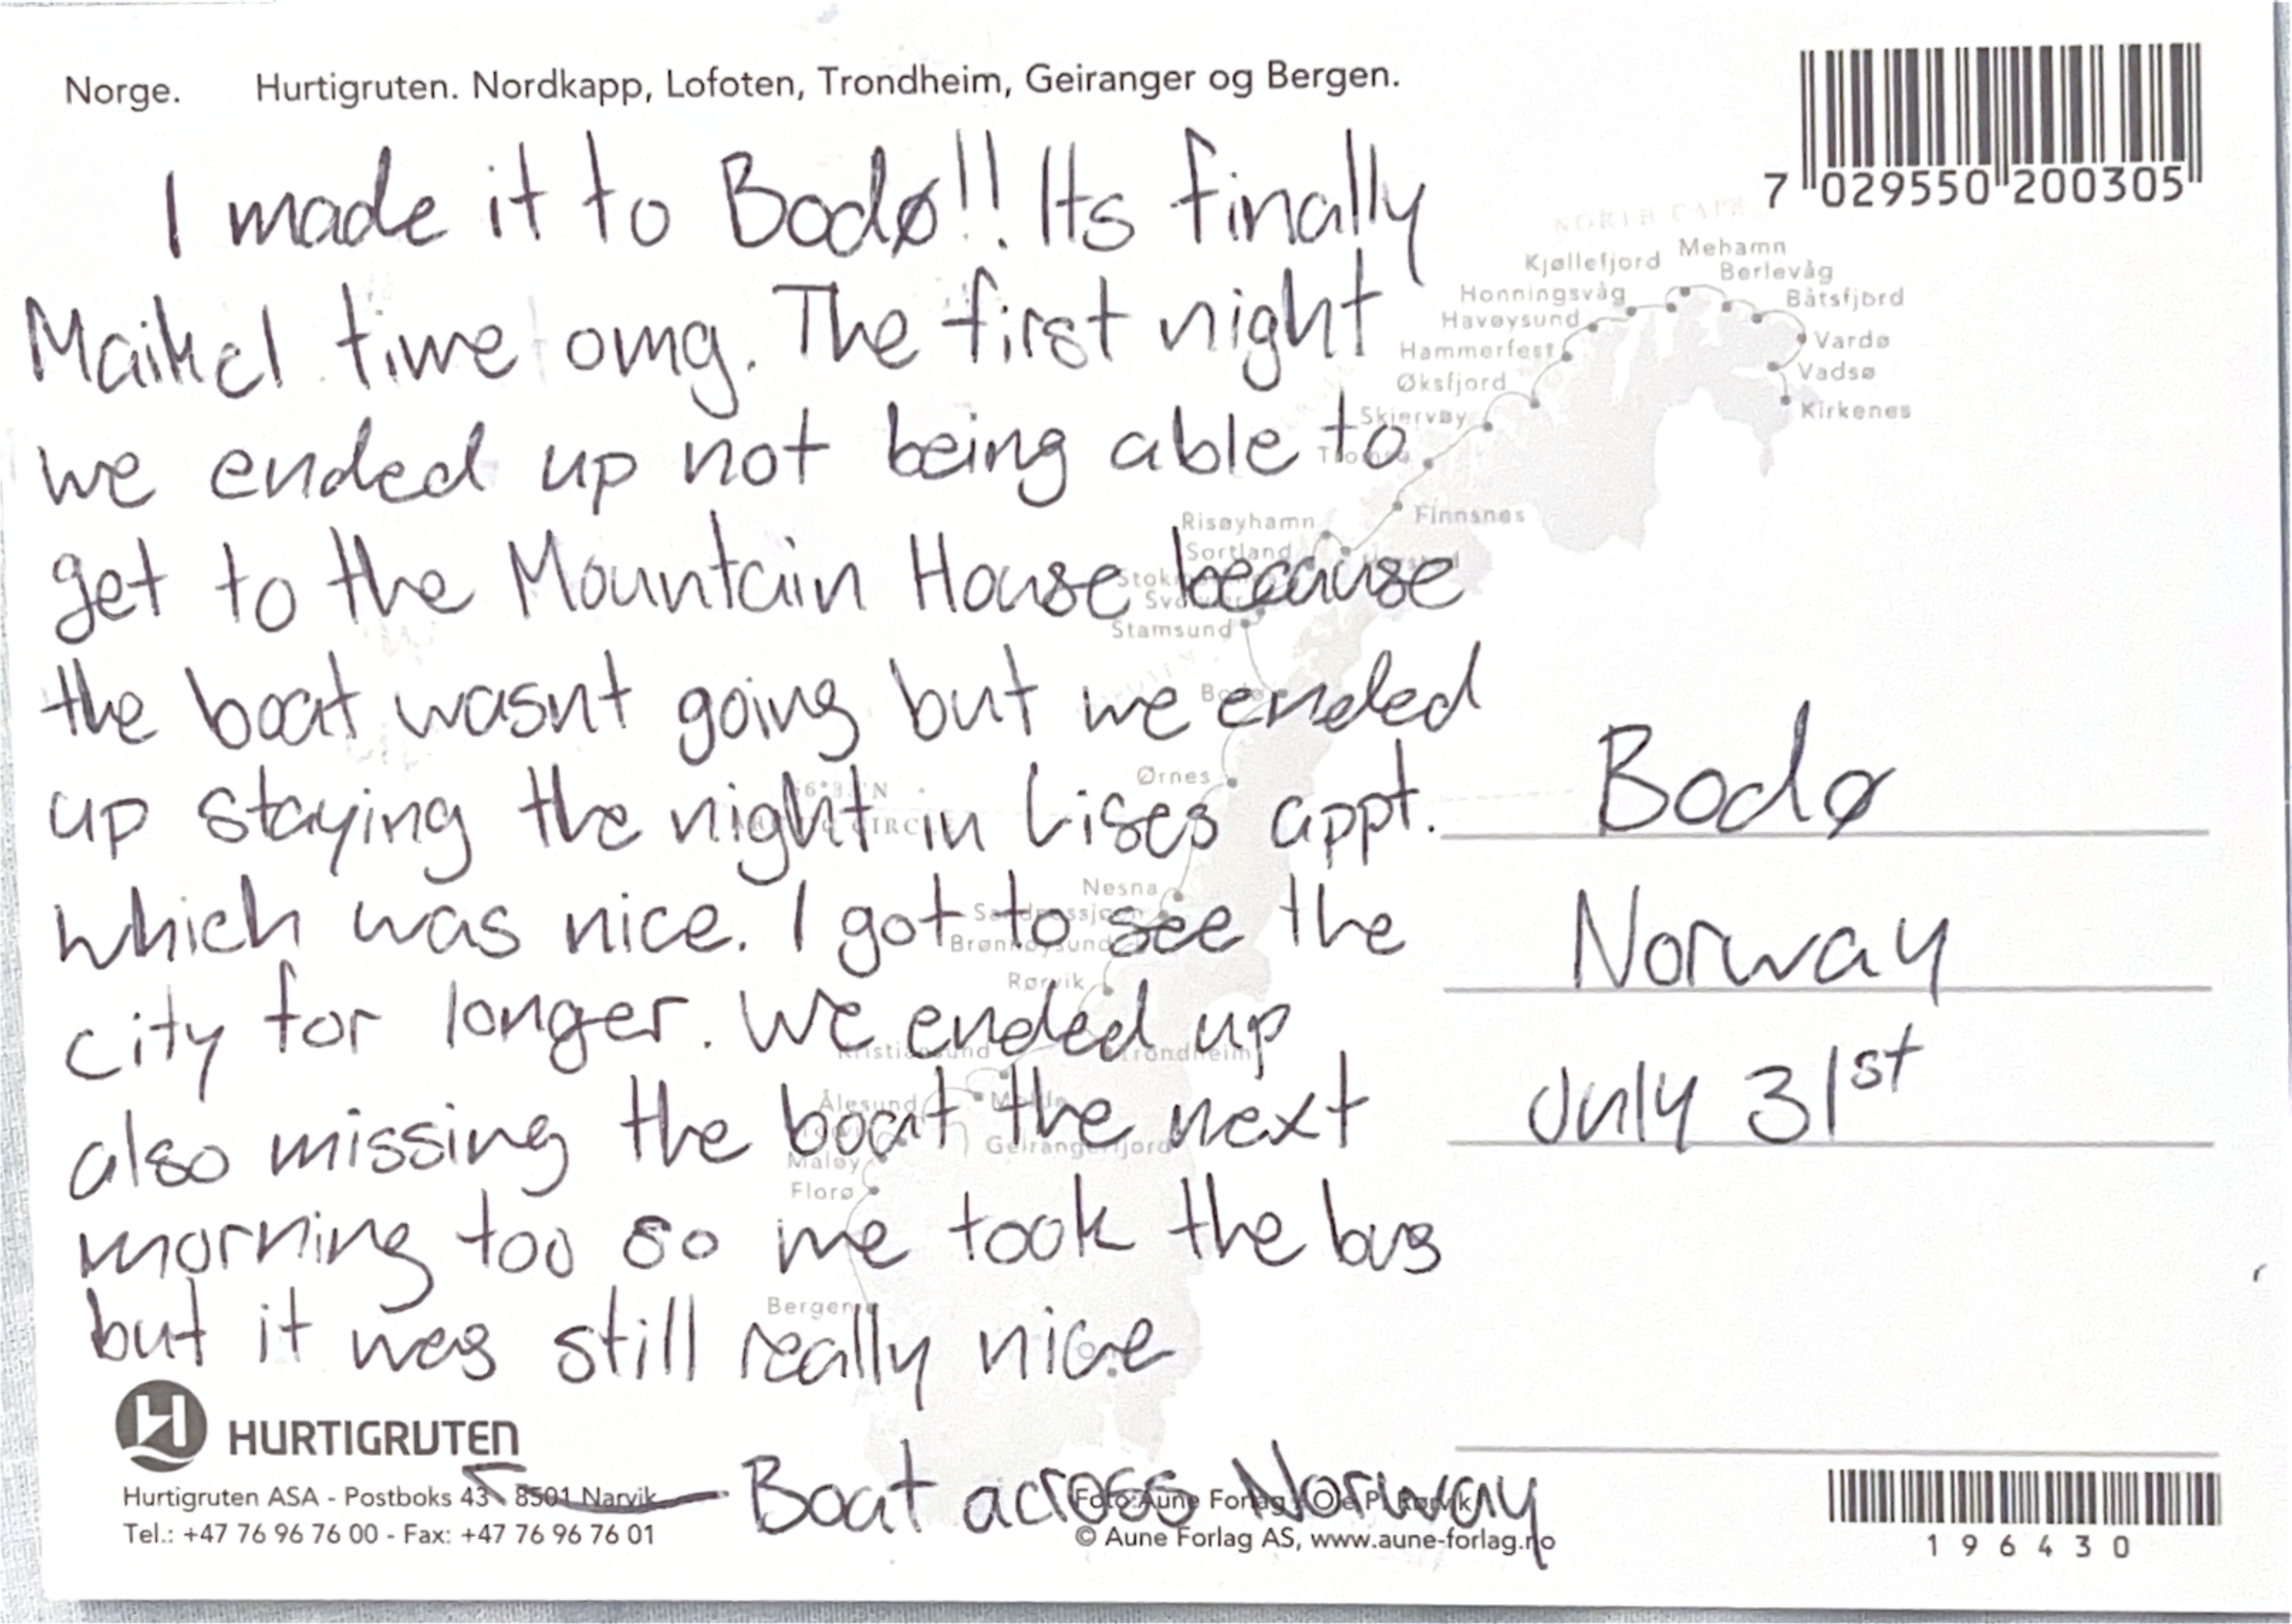 Norge. Hurtigruten. Nordkapp, Lofoten, Trondheim, Geiranger og Bergen.
7 029550 200305
I made it to Bodø!! Its finally
Maikel time omg. The first night
we ended up not being able to
get to the Mountain House because
the boat wasnt going but we ended
up staying the night in Lises appt.
which was nice. I got to see the
city for longer. We ended up
also missing the boat the next
morning too so we took the bus
but it was still really nice
Bodø
Norway
July 31st
Mehamn
Kjøllefjord
Berlevåg
Honningsvåg
Båtsfjord
Havøysund
Vardø
Hammerfest
Vadsø
Øksfjord
Kirkenes
Skjervøy
Finnsnes
Risøyhamn
Sortland
Stamsund
Ørnes
Nesna
Rørvik
Trondheim
Ålesund
Geirangerfjord
Måløy
Florø
Bergen
HURTIGRUTEN
Boat across Norway
Hurtigruten ASA - Postboks 43 - 8501 Narvik
Tel.: +47 76 96 76 00 - Fax: +47 76 96 76 01
Foto: Aune Forlag
© Aune Forlag AS, www.aune-forlag.no
196430